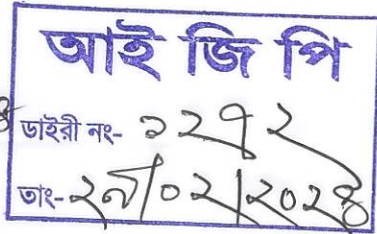 আই জি পি
ডাইরী নং- ১২৭২
তাং- ২৯/০২/২০২৪